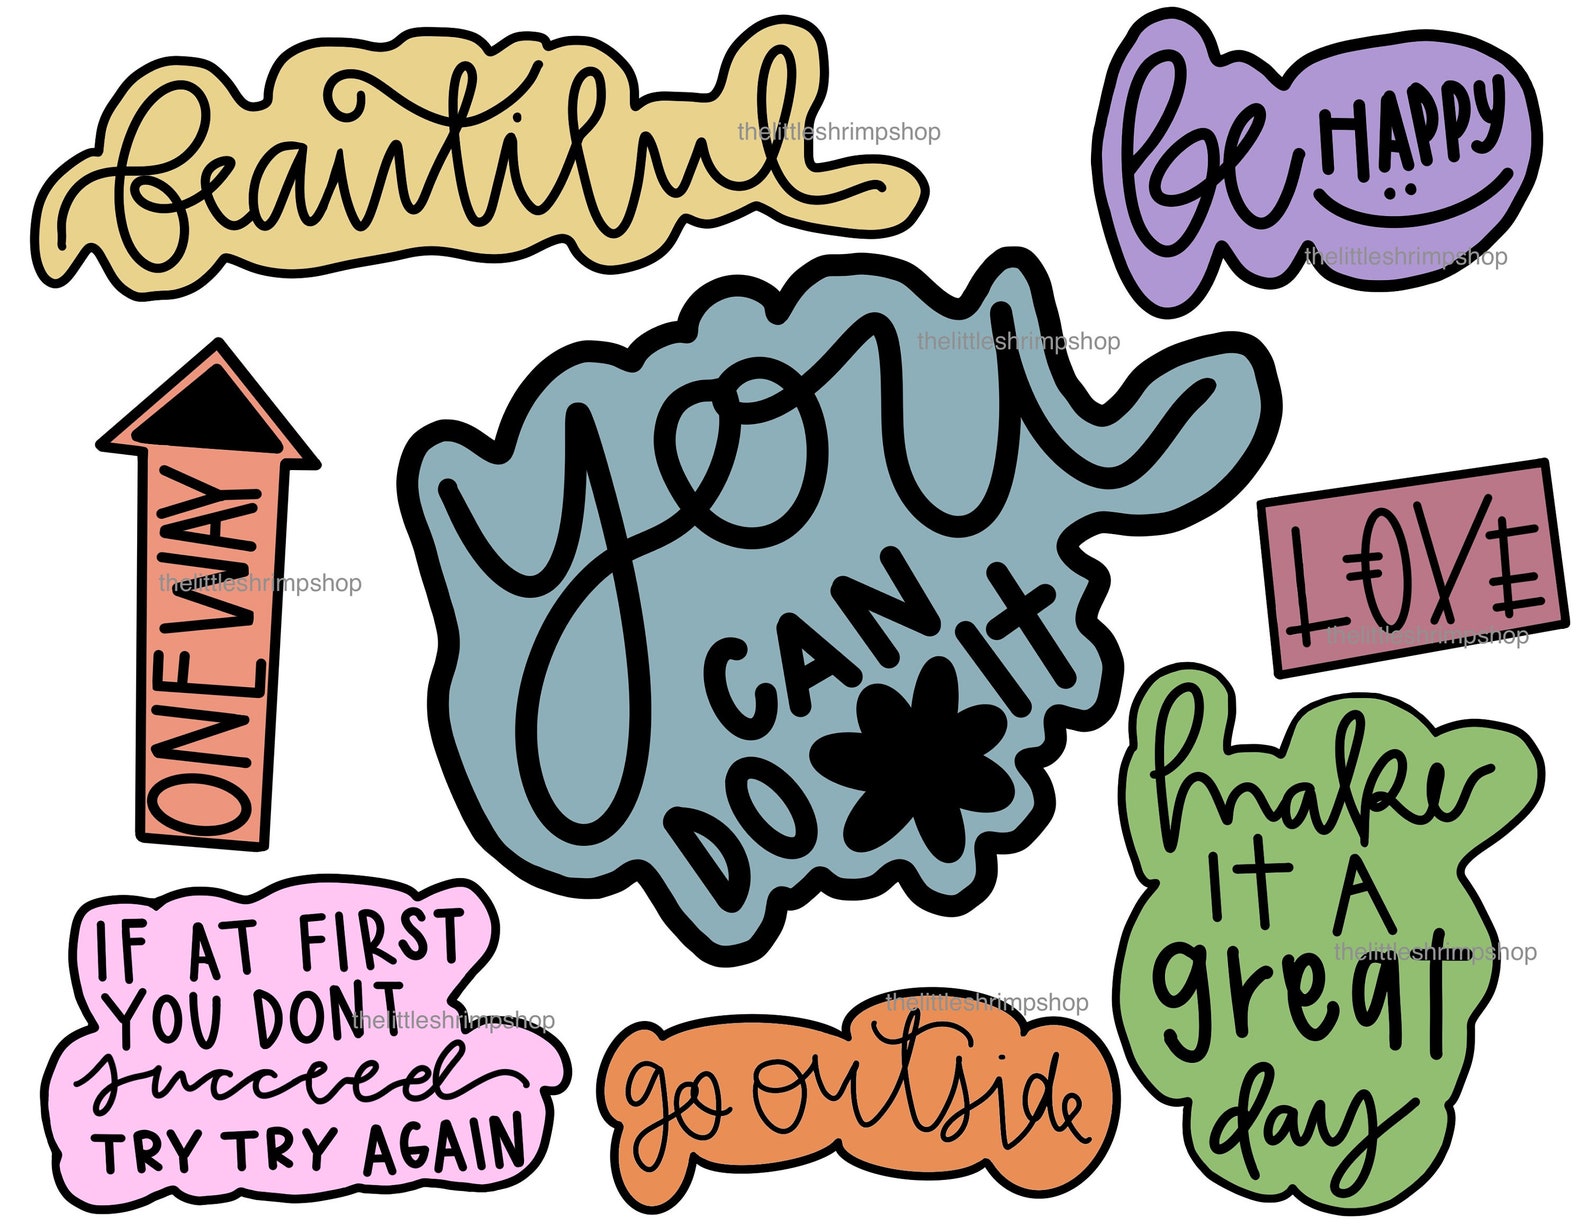 beautiful
thelittleshrimpshop
be HAPPY
thelittleshrimpshop
you
thelittleshrimpshop
CAN
DO IT
ONE WAY
thelittleshrimpshop
LOVE
thelittleshrimpshop
make
IT A
great
thelittleshrimpshop
day
IF AT FIRST
YOU DONT
thelittleshrimpshop
succeed
TRY TRY AGAIN
thelittleshrimpshop
go outside